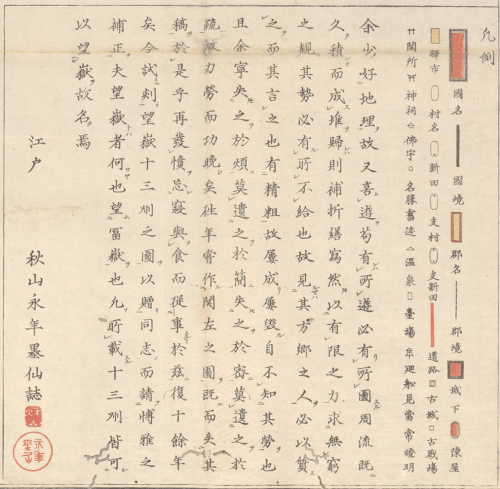 凡例
國名 國境 郡名 郡境 城下 陳屋
驛市 村名 新田 支村 支新田 道路 古城 古戰場
関所 神祠 佛宇 名勝舊迹 温泉 臺場 廻舩見當常燈明
余少好地理故又喜遊茍有所遊必有所圖周流既
久積而成堆歸則補折繕寫然以有限之力求無窮
之観其勢必有所不給也故見其方郷之人必以質
之而其言之也有精粗故屢成屢毀自不知其勞也
且余寧失之於煩莫遺之於簡失之於密莫遺之於
疏故力勞而功晩矣徃年嘗作関左之圖既而失其
稿於是乎再發憤忘寝與食而従事於茲復十餘年
矣今試刻望嶽十三州之圖以贈同志而請博雅之
補正夫望嶽者何也望冨嶽也凡所載十三州皆可
以望嶽故名焉
江戸
秋山永年墨仙誌